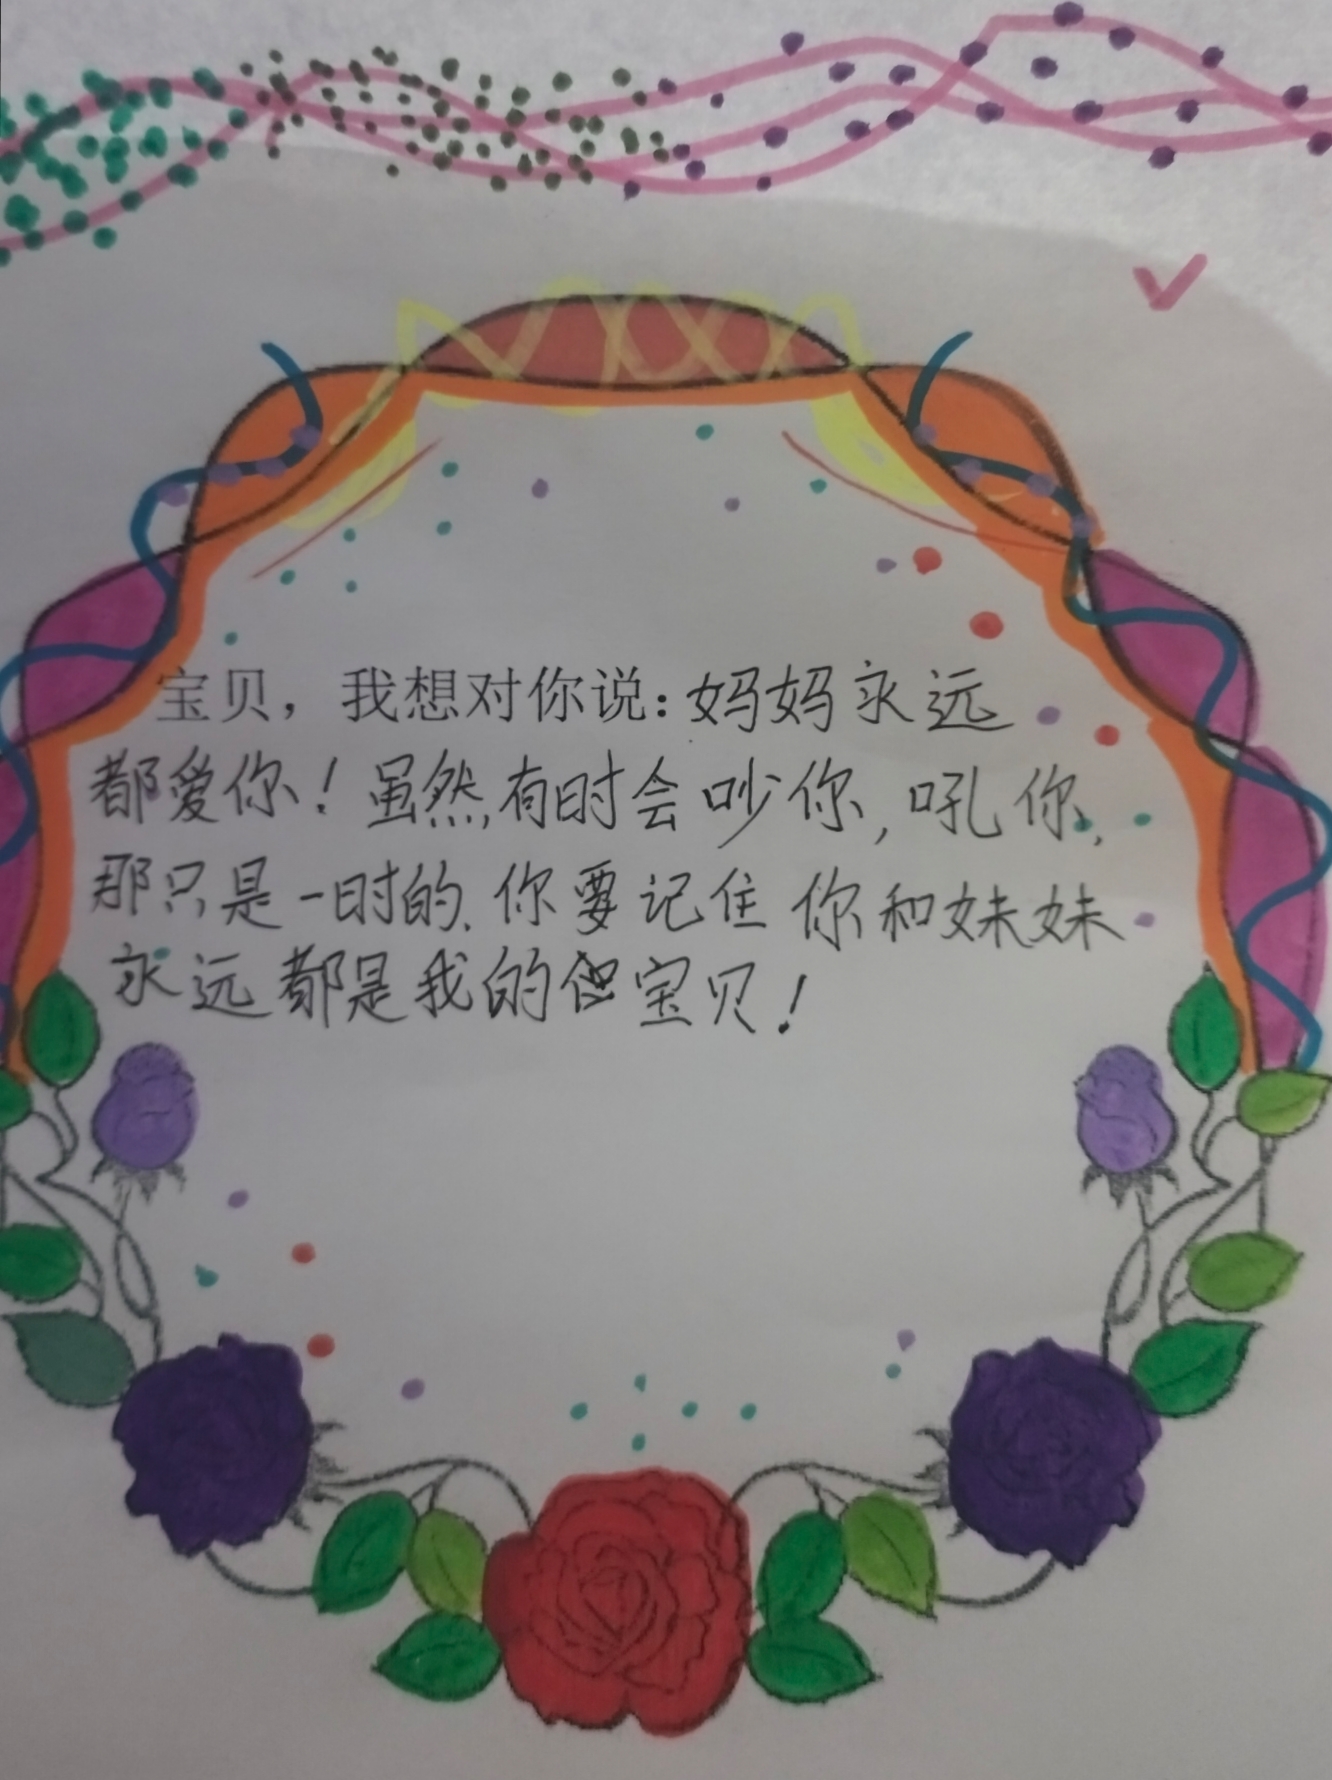 宝贝，我想对你说：妈妈永远
都爱你！虽然有时会吵你，吼你，
那只是一时的、你要记住你和妹妹
永远都是我的宝贝！